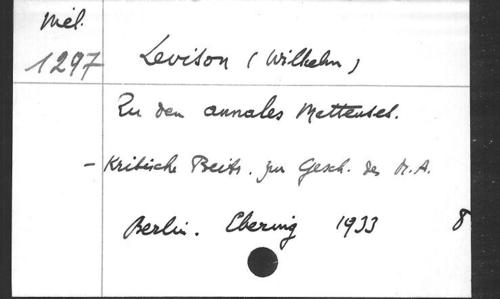 Mél.
1297
Levison (Wilhelm)
Zu den annales Mettenses.
- Kritische Beitr. zur Gesch. des M.A.
Berlin. Ebering 1933 8